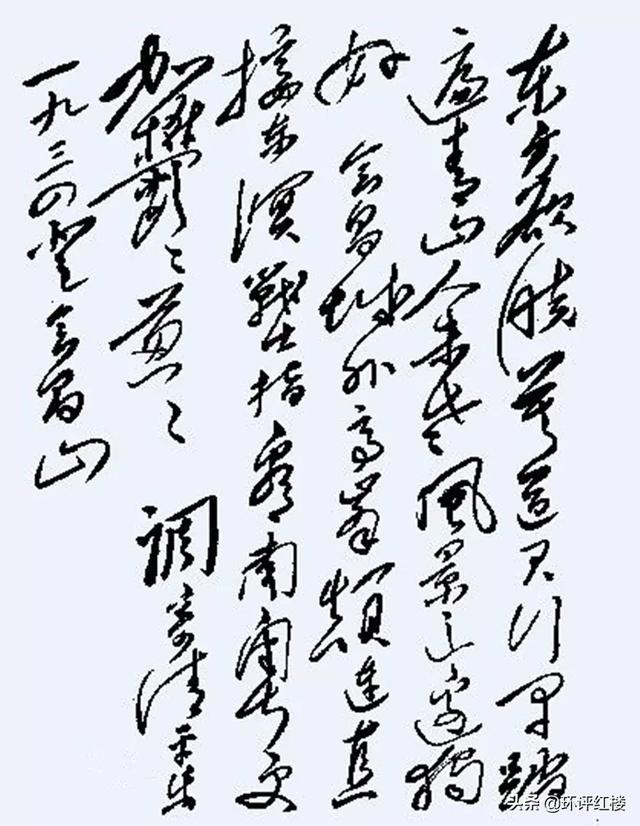 东方欲晓莫道君行早踏
遍青山人未老風景这邊独
好 会昌城外高峯颠连直
接东溟戰士指看南粤更
加鬱〻葱〻 調寄清平乐
一九三四登会昌山
头条 @环评红楼